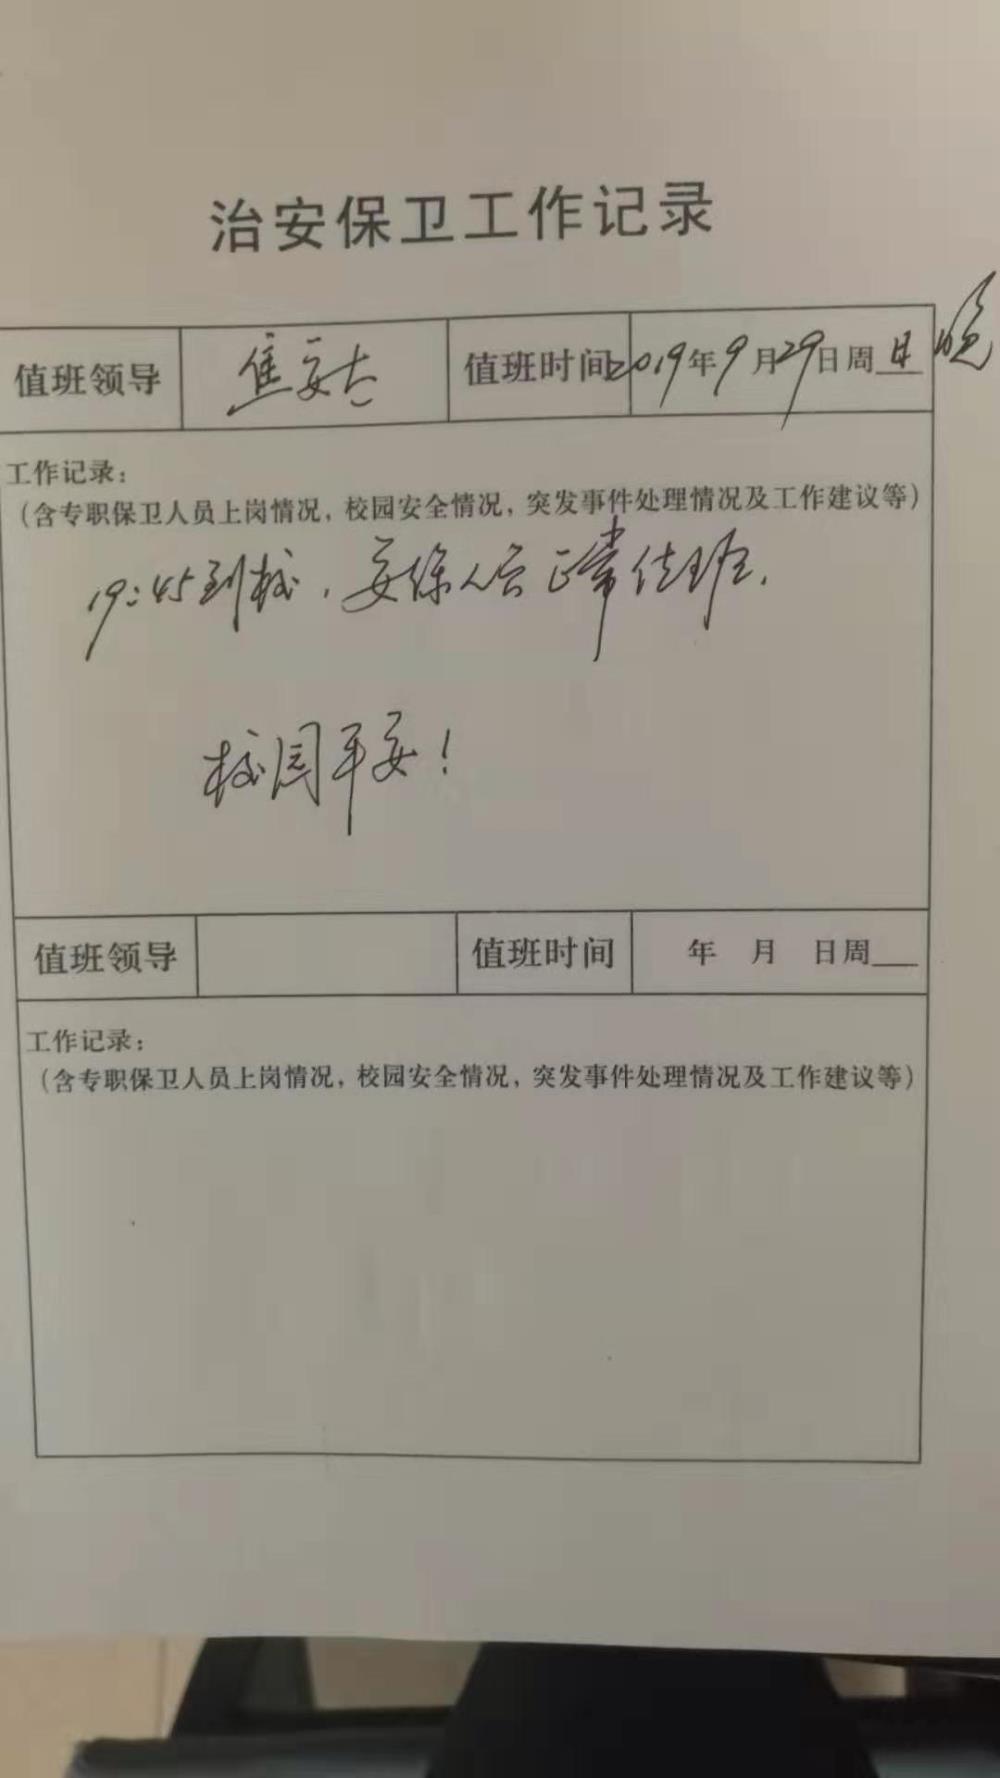 治安保卫工作记录
值班领导 焦安 值班时间 2019年9月29日周日 晚
工作记录：
（含专职保卫人员上岗情况，校园安全情况，突发事件处理情况及工作建议等）
19:45到校，安保人员正常值班，
校园平安！
值班领导 值班时间 年 月 日周
工作记录：
（含专职保卫人员上岗情况，校园安全情况，突发事件处理情况及工作建议等）